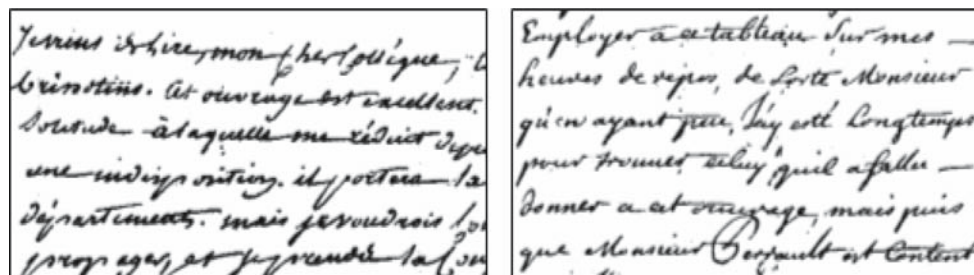 Je viens de lire, mon cher Collégue,
brissotins. Cet ouvrage est excellent.
Solitude à laquelle me réduit depu
une indisposition. il portera la
départements. mais je voudrois
propager, et je prendrai la
Employer a ce tableau Sur mes
heures de repos, de Sorte Monsieur
qu'en ayant peu, J'ay esté Longtemps
pour trouver celuy quil a fallu
donner a cet ouvrage, mais puis
que Monsieur Perrault est Content